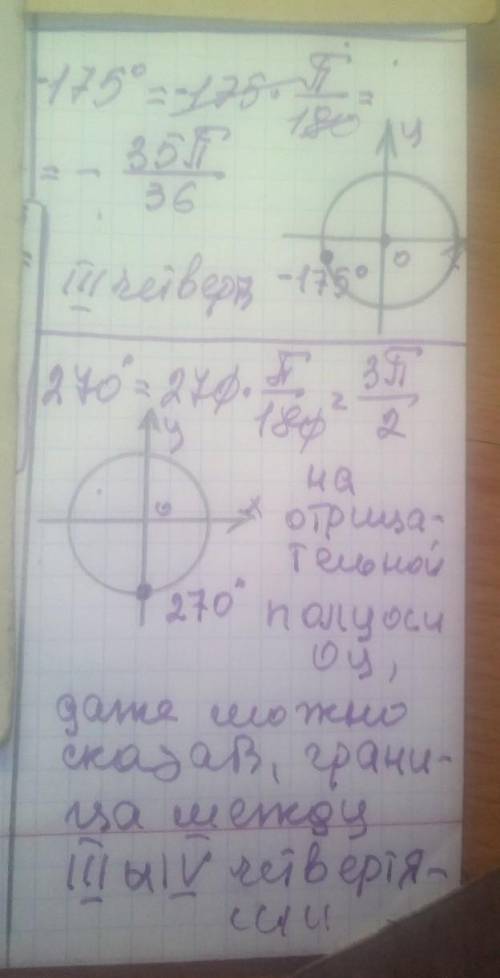 -175° = -175 · π/180 =
= - 35π/36
y
0
x
III четверть
-175°
270° = 270 · π/180 = 3π/2
y
0
x
270°
на
отрица-
тельной
полуоси
оу,
даже можно
сказать, грани-
ца между
III и IV четвертя-
ми